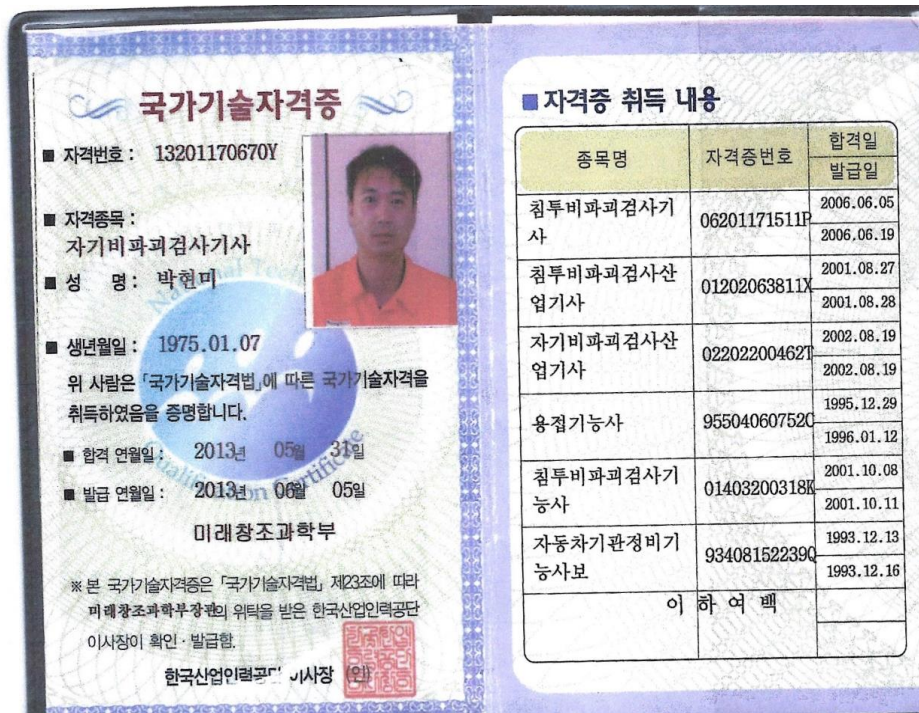 국가기술자격증
■ 자격번호 : 13201170670Y
■ 자격종목 :
자기비파괴검사기사
■ 성 명 : 박현미
■ 생년월일 : 1975.01.07
위 사람은 「국가기술자격법」에 따른 국가기술자격을
취득하였음을 증명합니다.
■ 합격 연월일 : 2013년 05월 31일
■ 발급 연월일 : 2013년 06월 05일
미래창조과학부
※ 본 국가기술자격증은 「국가기술자격법」 제23조에 따라
미래창조과학부장관의 위탁을 받은 한국산업인력공단
이사장이 확인 · 발급함.
한국산업인력공단 이사장 (인)
National
Qualification Certificate
■ 자격증 취득 내용
종목명 자격증번호 합격일
발급일
침투비파괴검사기 06201171511P 2006.06.05
사 2006.06.19
침투비파괴검사산 01202063811X 2001.08.27
업기사 2001.08.28
자기비파괴검사산 02202200462T 2002.08.19
업기사 2002.08.19
용접기능사 95504060752C 1995.12.29
1996.01.12
침투비파괴검사기 01403200318K 2001.10.08
능사 2001.10.11
자동차기관정비기 93408152239Q 1993.12.13
능사보 1993.12.16
이 하 여 백